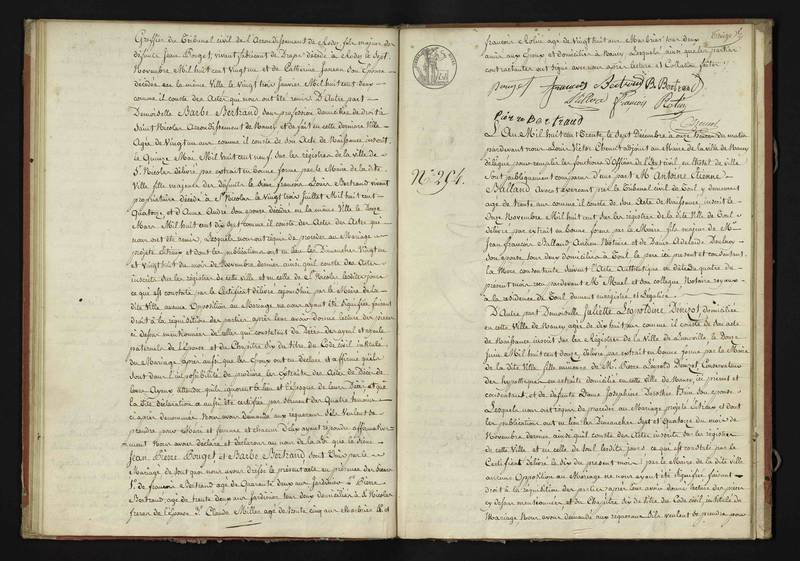 Greffier du Tribunal civil de l'Arrondissement de Rodez fils majeur de
défunts Jean Pouget, vivant fabricant de Draps décédé à Rodez le Sept
Novembre Mil huit cent Vingt un et de Catherine son Epouse
décédée en la même Ville le Vingt trois Janvier Mil huit cent deux
comme il conste des Actes qui nous ont été remis D'Autre part
Demoiselle Barbe Bertrand Sans profession domiciliée de droit à
Saint Nicolas Arrondissement de Nancy et de fait en cette dernière Ville
Agée de Vingt un ans comme il conste de son Acte de Naissance inscrit
le Quinze Mai Mil huit cent Neuf Sur les registres de la ville de
St Nicolas délivré par extrait en bonne forme par le Maire de la dite
Ville, fille majeure des défunts le Sieur François Louis Bertrand vivant
propriétaire décédé à St Nicolas le Vingt trois Juillet Mil huit cent
Quatorze et D'Anne son épouse décédée en la même Ville le Douze
Mars Mil huit cent dix sept comme il conste des Actes qui
nous ont été remis, Lesquels nous ont requis de procéder au Mariage
projeté entreux et dont les publications ont eu lieu les Dimanches Vingt un
et Vingt huit du mois de Novembre dernier ainsi qu'il conste des Actes
inscrits sur les registres de cette ville et en celle de St Nicolas
ce qui est constaté par le Certificat délivré aujourd'hui par le Maire de la
dite Ville aucune Opposition au Mariage ne nous ayant été Signifiée faisant
droit à la réquisition des parties après leur avoir donné lecture des pièces
ci dessus mentionnées de celles qui constatent les Décès des ayeul et ayeule
paternels de l'Epouse et du Chapitre Six du titre du Code civil intitulé
du Mariage après aussi que les Epoux ont eu déclaré et affirmé qu'ils
sont dans l'impossibilité de produire les extraits des Actes de Décès de
leurs Ayeux attendu qu'ils ignorent le lieu et l'époque de leurs Décès, et que
la dite déclaration a aussi été certifiée par serment des Quatre témoins
ci après dénommés Nous avons demandé aux requérans S'ils Veulent se
prendre pour Mari et femme et chacun d'eux ayant répondu affirmative-
ment Nous avons déclaré et déclarons au nom de la loi que le Sieur
Jean Pierre Pouget et Barbe Bertrand sont Unis par le
Mariage de tout quoi nous avons dressé le présent acte en présence des Sieurs
François Bertrand agé de Quarante deux ans Jardinier Pierre
Bertrand, agé de trente deux ans Jardinier tous deux domiciliés à St Nicolas
frères de l'Epouse Claude Miller agé de trente cinq ans Marbrier et
François Rolin agé de Vingt huit ans Marbrier tous deux
amis aux Epoux et domiciliés à Nancy Lesquels ainsi que les parties
contractantes ont signé avec nous après lecture et Collation faites
Pouget François Bertrand B. Bertrand
François Rolin
Pierre Bertrand
N.º 294.
L'An Mil huit cent Trente, le Sept Décembre à Onze heures du matin
pardevant nous Victor Chenut adjoint au Maire de la ville de Nancy
délégué pour remplir les fonctions d'Officier de l'Etat civil en l'hôtel de ville
Sont publiquement comparus d'une part Mr. Antoine Etienne
Balland Avocat exerçant près le Tribunal civil de Toul y demeurant
agé de trente ans comme il conste de son Acte de Naissance inscrit le
Onze Novembre Mil huit cent sur les registres de la dite Ville de Toul
délivré par extrait en bonne forme par le Maire, fils majeur de Mr.
Jean François Balland Ancien Notaire et de Dame Adélaïde
Son épouse tous deux domiciliés à Toul, le père ici présent et consentant,
la Mère consentante suivant l'Acte Authentique en date du quatre du
présent mois reçu pardevant Me. et son collègue, Notaires royaux
à la résidence de Toul dument enregistré et légalisé
D'Autre part Demoiselle Juliette Léopoldine Douzot domiciliée
en cette Ville de Nancy agée de dix huit ans comme il conste de son acte
de Naissance inscrit Sur les Registres de la Ville de Lunéville le Douze
Juin Mil huit cent douze, délivré par extrait en bonne forme par le Maire
de la dite Ville, fille mineure de Mr. Pierre Léopold Douzot Conservateur
des hypothèques en retraite domicilié en cette ville de Nancy, ici présent et
consentant, et de défunte Dame Joséphine Dorothée Son épouse
Lesquels nous ont requis de procéder au Mariage projeté entreux et dont
les publications ont eu lieu les Dimanches Sept et Quatorze du mois de
Novembre dernier ainsi qu'il conste des Actes inscrits sur les registres
de cette Ville et en celle de Toul lesdits jours ce qui est constaté par le
Certificat délivré le Six du présent mois par le Maire de la dite ville
aucune Opposition au Mariage ne nous ayant été Signifiée faisant
droit à la réquisition des parties, après leur avoir donné lecture des pièces
cy dessus mentionnées, et du Chapitre Six du titre du Code civil, intitulé du
Mariage Nous avons demandé aux requérans S'ils veulent se prendre pour